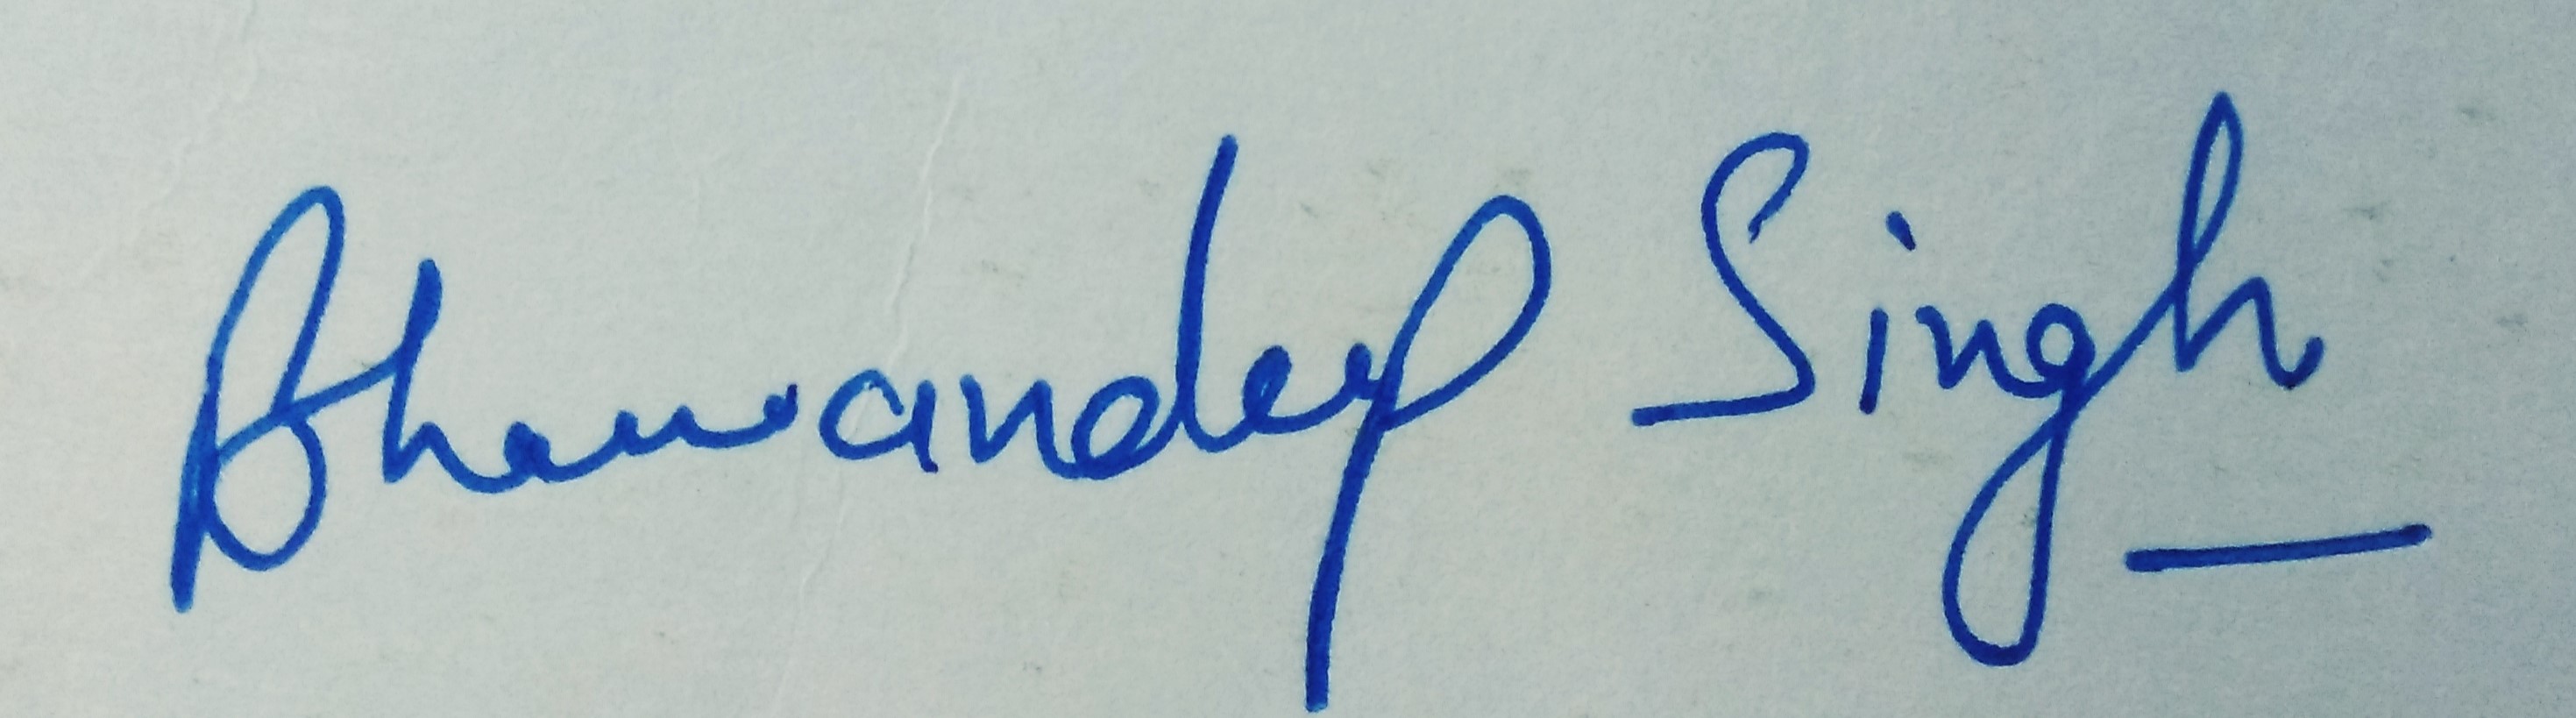 Bhawandeep Singh